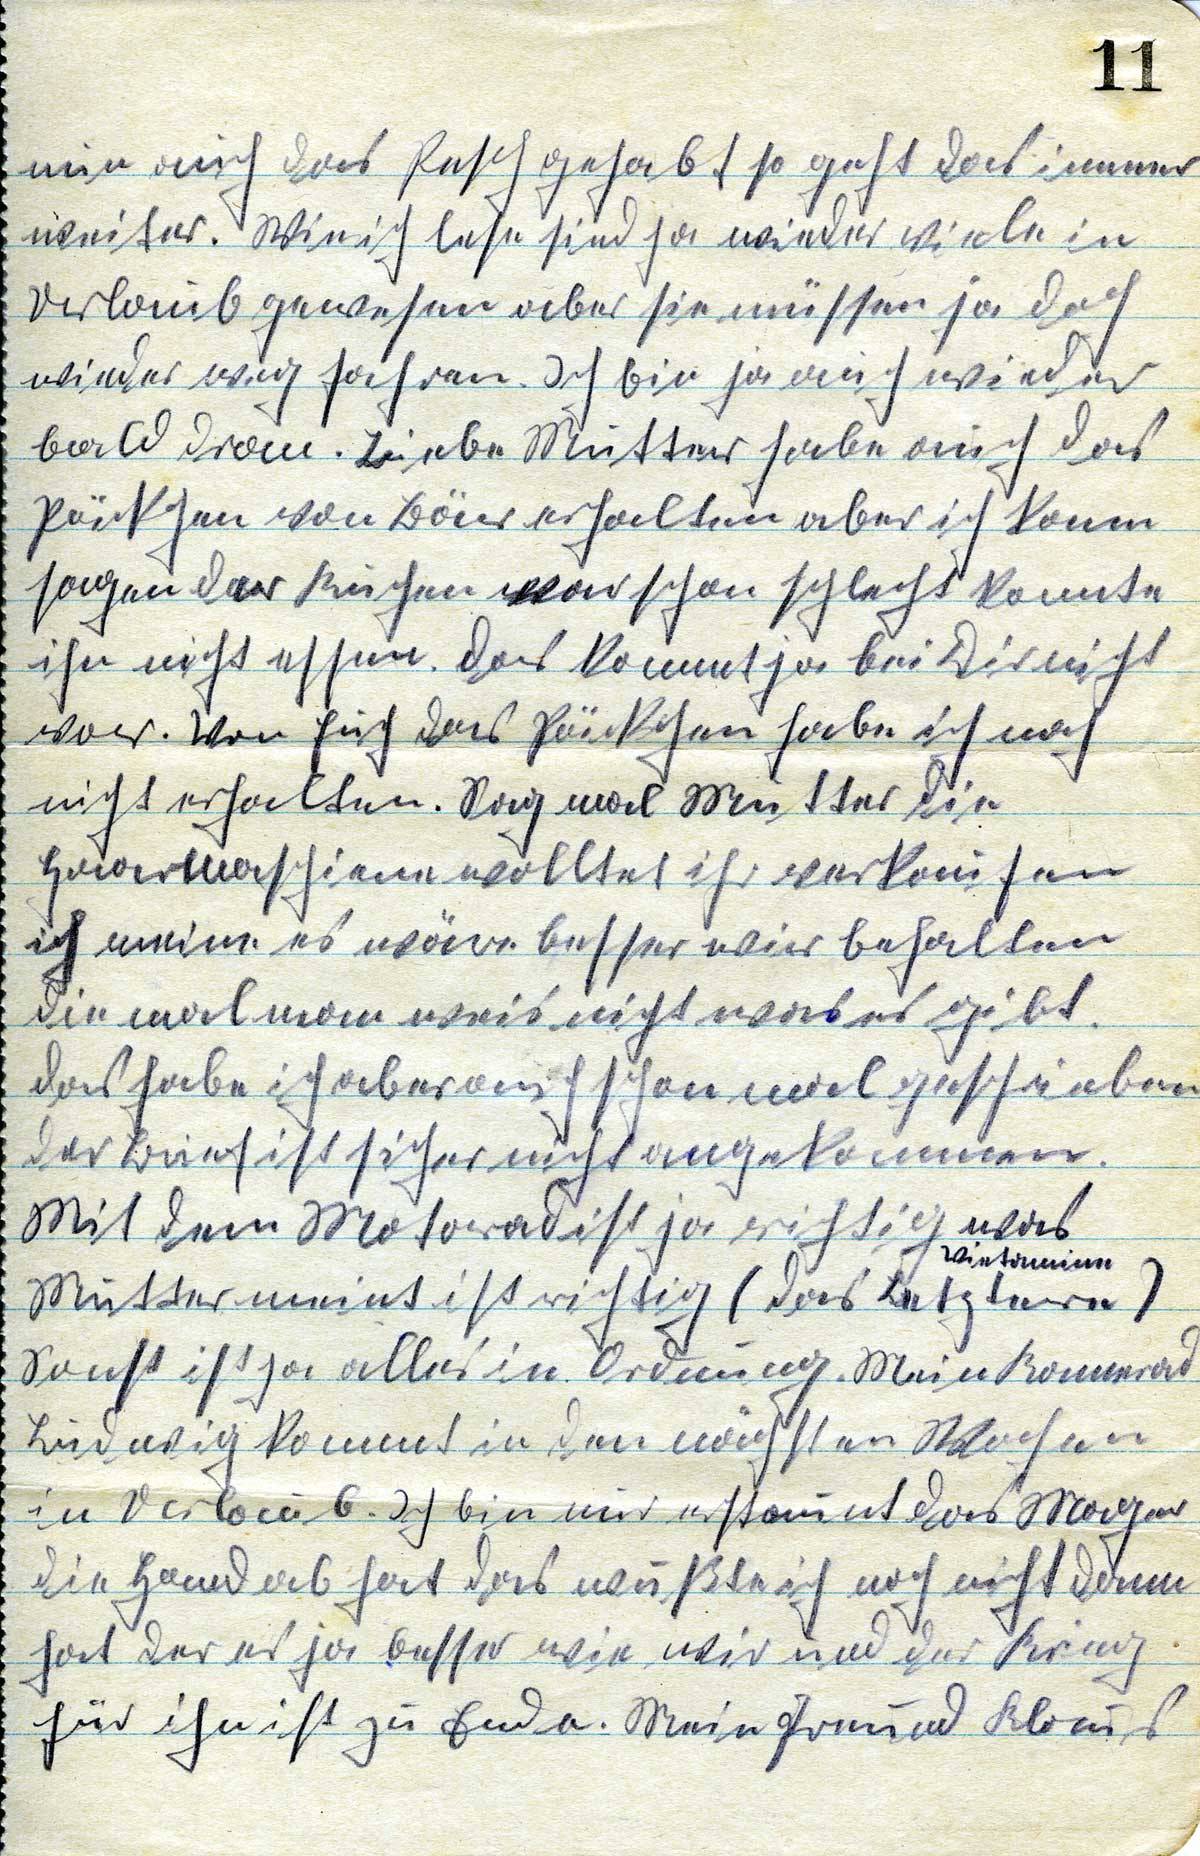 11
mir auch das Pesch gehabt so geht das immer
weiter. Wie ich lese sind ja wieder viele in
Uerlaub gewesen aber sie müssen ja doch
wieder weg fahren. Ich bin ja auch wieder
bald dran. Liebe Mutter habe auch das
Päckchen von Bär erhalten aber ich kann
sagen der Kuchen war schon schlecht konnte
ihn nicht essen. Das kommt ja bei Dir nicht
vor. Von Euch das Päckchen habe ich noch
nicht erhalten. Sag mal Mutter die
maschiene wolltet ihr verkaufen
ich meine es wäre besser wier behalten
die mal man weis nicht was es gibt.
Das habe ich aber auch schon mal geschrieben
der Brief ist sicher nicht angekommen.
Mit dem Motorrad ist ja richtig was
Vietamine
Mutter meint ist richtig (das Letztere)
Sonst ist ja alles in Ordnung. Mein Kamerad
Ludwig kommt in den nächsten Wochen
in Uerlaub. Ich bin nur erstaunt das Mager
die Hand ab hat das wußte ich noch nicht dann
hat der es ja besser wie wir und der Krieg
für ihn ist zu Ende. Mein Freund Klaus